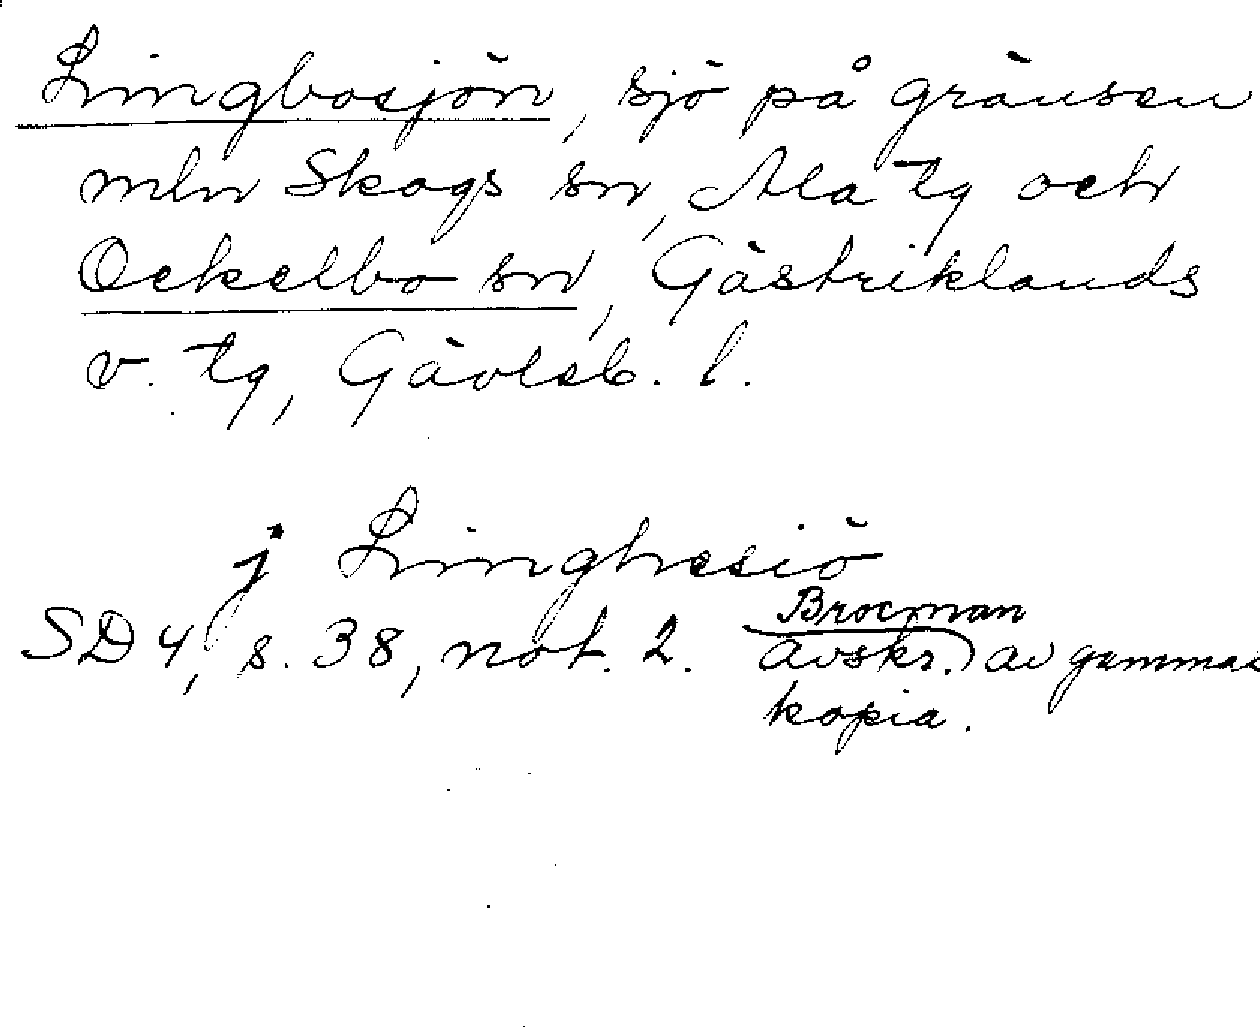 Lingbosjön, sjö på gränsen
mln Skogs sn, Ala tg och
Ockelbo sn, Gästriklands
v. tg, Gävleb. l.
j Linghesiö
SD 4, s. 38, not. 2. Brocman
avskr.) av gammal
kopia.